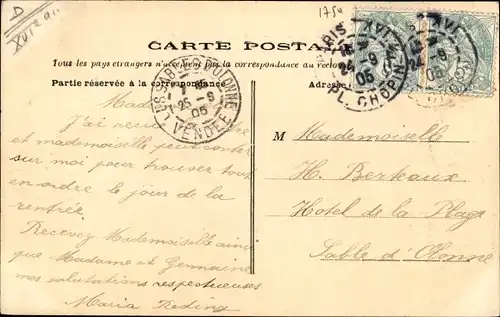 D
XVI en
1754
CARTE POSTALE
Tous les pays étrangers n'acceptent pas la correspondance au recto
Partie réservée à la correspondance
Adresse
PARIS XVI
24 -9
05
PL. CHOPIN
LES SABLES D'OLONNE
25 -9
05
VENDÉE
J'ai reçu votre lettre
et mademoiselle peut compter
sur moi pour trouver tout
en ordre le jour de la
rentrée.
Recevez Mademoiselle ainsi
que Madame et Germaine
mes salutations respectueuses
Maria Reding
M Mademoiselle
H. Berteaux
Hotel de la Plage
Sable d'Olonne